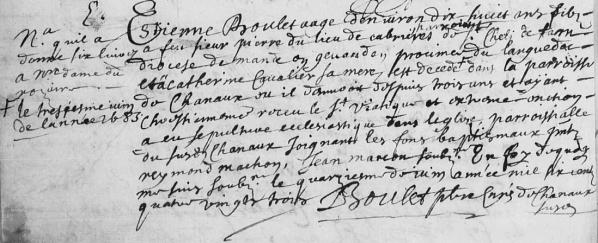 E.
Na quil a
donne six livres
a nre dame du
rosaire
† le tresiesme juin
de lannee 1683
Estienne Boulet aage denviron dix huict ans filz
a feu sieur pierre du lieu de cabrieres de St Chely de Tarn
diocese de mande en gevaudan province du languedoc
et a Catherine Cavalier sa mere, est decede dans la parroisse
de Chanaux ou il demuroit despuis trois ans et ayant
Chrestienement receu le St Viatique et extreme onction
a eu sepulture ecclesiastique dans leglise parroissialle
du susd Chanaux joignant les fons baptismaux pnts
reymond machon, jean marcon soubnes En foy dequoy
me suis soubne le quatriesme de juin année mil six cens
quatre vingts trois Boulet pbre Curé de Chanaux
susd